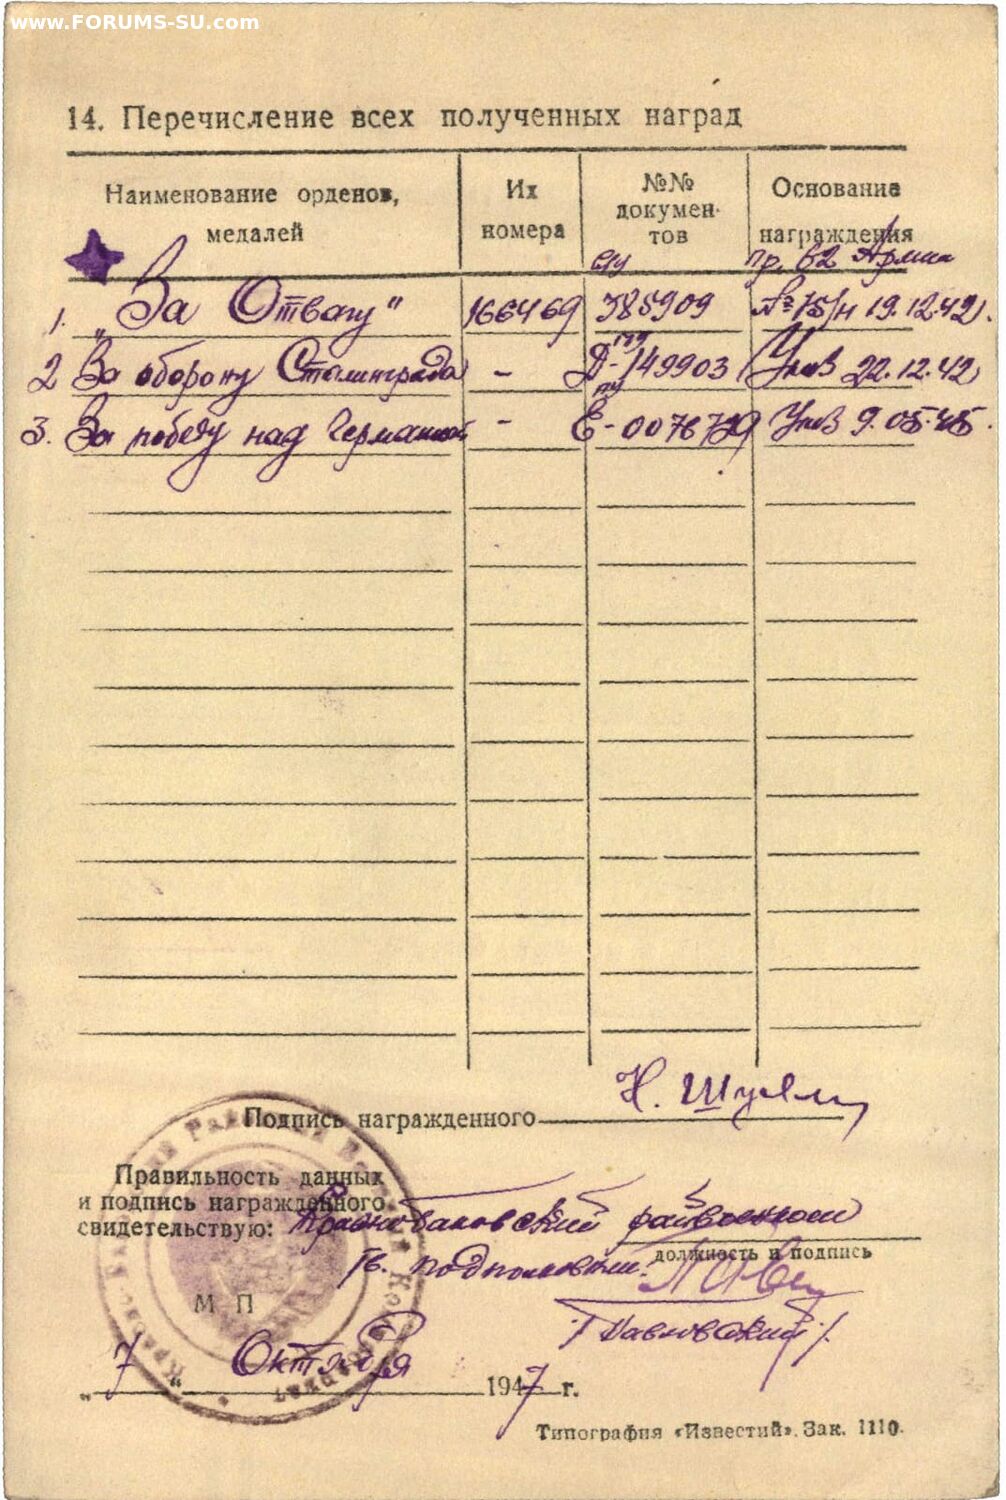 www.FORUMS-SU.com
14. Перечисление всех полученных наград
Наименование орденов, медалей
Их номера
№№ документов
Основание награждения
1. „За Отвагу" 166469 385909 пр. 62 Армии № 75/н 19.12.42.
2 За оборону Сталинграда - Д-149903 Указ 22.12.42
3. За победу над Германией - Е-0076729 Указ 9.05.45.
Подпись награжденного
Правильность данных
и подпись награжденного
свидетельствую: Краснобаковский райвоенком
должность и подпись
Гв. подполковник
/Павловский/.
М П
„7" Октября 1947 г.
Типография «Известий». Зак. 1110.